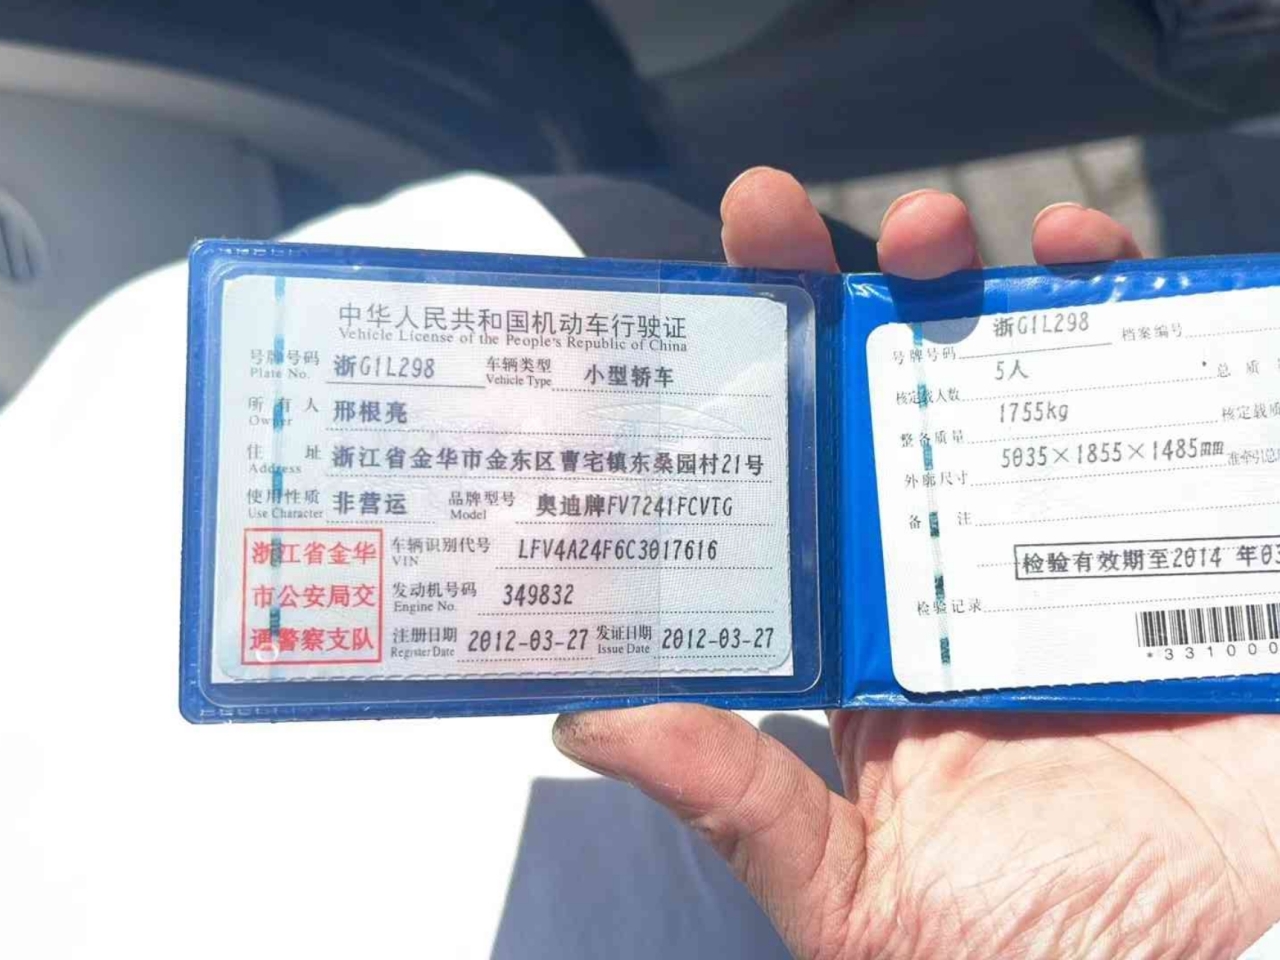 中华人民共和国机动车行驶证
Vehicle License of the People's Republic of China
号牌号码 浙G1L298 车辆类型 小型轿车
Plate No. Vehicle Type
所有人 邢根亮
Owner
住址 浙江省金华市金东区曹宅镇东桑园村21号
Address
使用性质 非营运 品牌型号 奥迪牌FV7241FCVTG
Use Character Model
浙江省金华市公安局交通警察支队
车辆识别代号 LFV4A24F6C3017616
VIN
发动机号码 349832
Engine No.
注册日期 2012-03-27 发证日期 2012-03-27
Register Date Issue Date
号牌号码 浙G1L298 档案编号
核定载人数 5人 总质
整备质量 1755kg 核定载质
外廓尺寸 5035×1855×1485mm 准牵引总
备注
检验有效期至2014 年03
检验记录
*331000